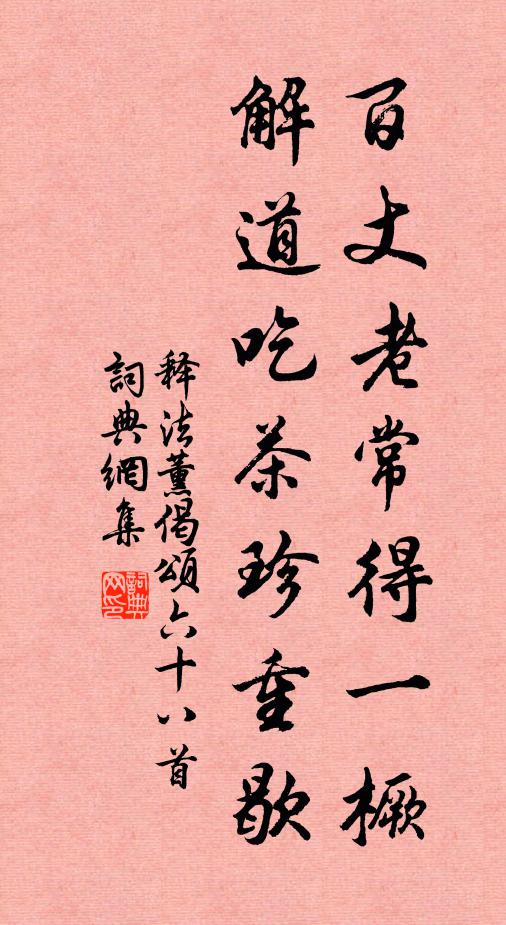 百丈老常得一橛
解道吃茶珍重歇
释法薰偈颂六十八首
词典網集
詞典网印